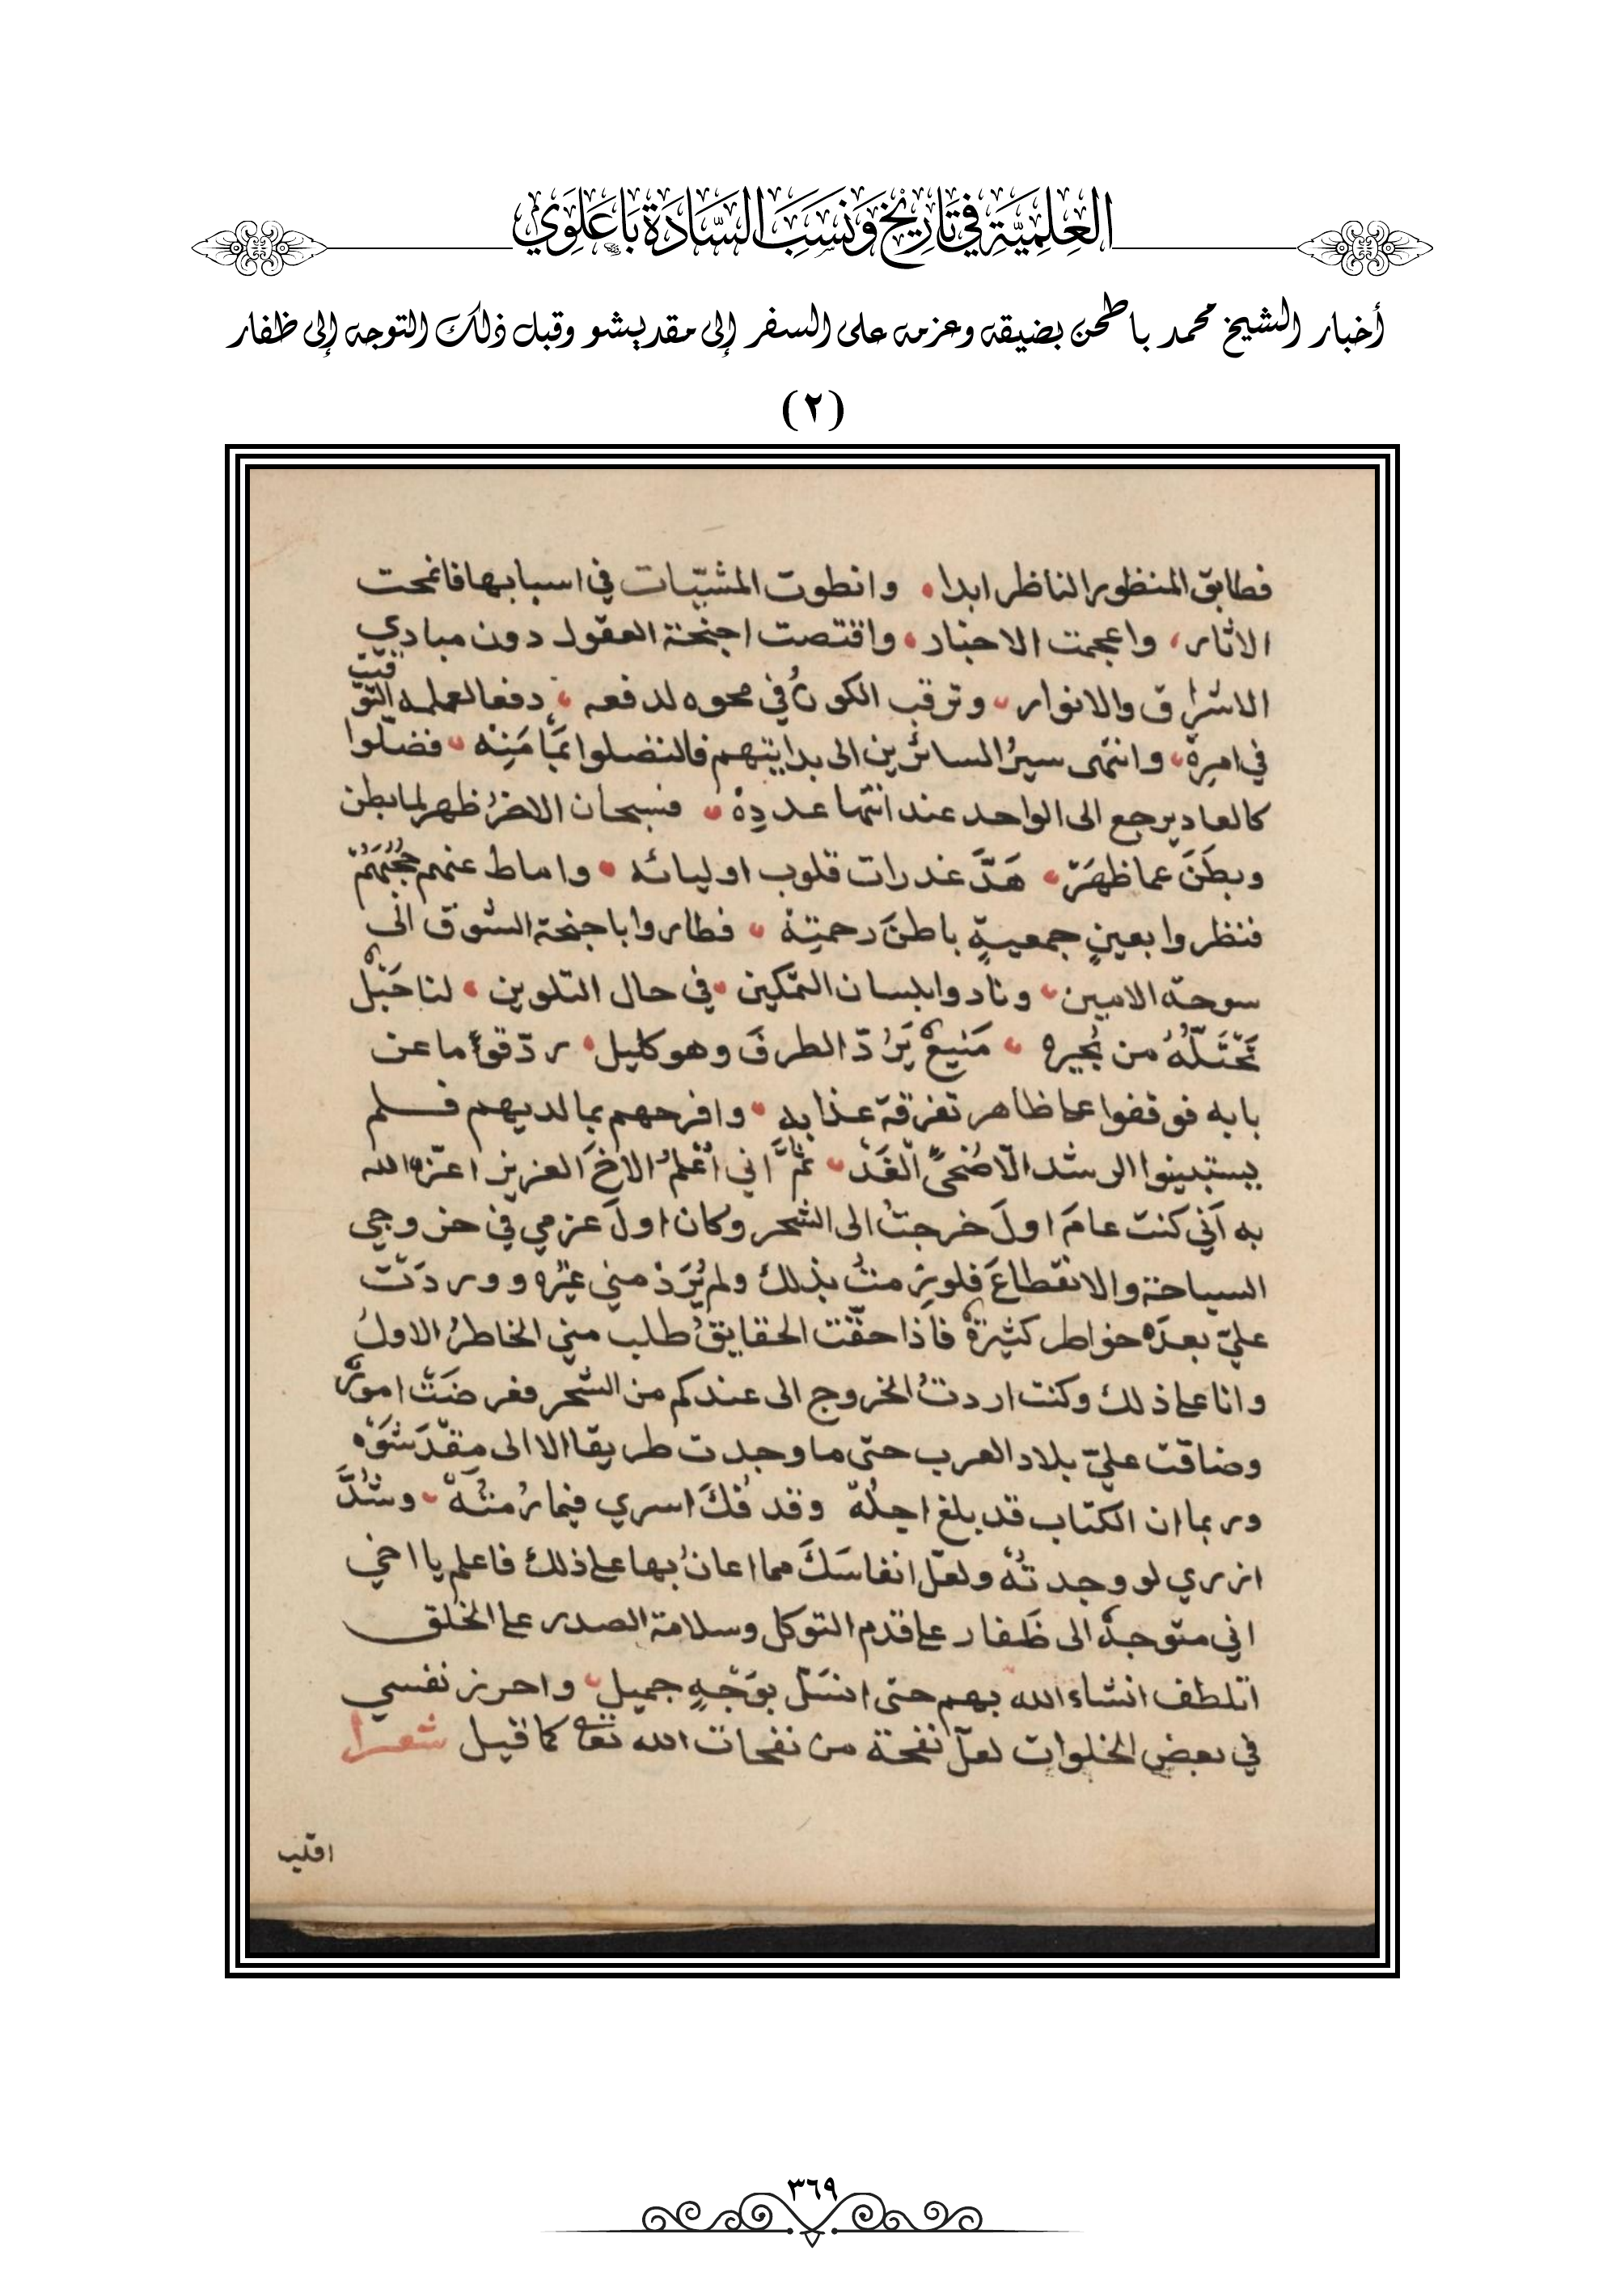 العلمية في تاريخ ونسب السادة باعلوي
أخبار الشيخ محمد باطحن بضيقه وعزمه على السفر إلى مقديشو وقبل ذلك التوجه إلى ظفار
(٢)
فطابق المنظور الناظر ابدا وانطوت المشيّات في اسبابها فانمحت
الاثار واعجمت الاخبار واقتصت اجنحة العقول دون مبادي
الاشراق والانوار وترقب الكونُ في محوه لدفعه دفعا لعلمه
في امرِهْ وانتهى سيرُ السائرين الى بدايتهم فضلّوا
كالعاد يرجع الى الواحد عند انتها عددِهْ فسبحان ظهر لما بطن
وبطَنَ عما ظهَرَ هَدَّ غدرات قلوب اوليائه واماط عنهم حُجُبَهُمْ
فنظروا بعينٍ جمعيةٍ باطنَ رحمتِهْ فطاروا باجنحة الشوق الى
سوحه الامين ونادوا بلسان التمكين في حال التلوين لنا جَبَلٌ
تحْتَلُّهُ من نُجيره مَنيعٌ يَرُدّ الطرفَ وهو كليل ردّ قوماً عن
بابه فوقفوا على ظاهر تفرقة عذابه وافرحهم بما لديهم فلم
يستبينوا الرشد الّا ضُحىً الْغَدْ ثمَّ اني اُعْلمُ الاخَ العزيز اعزّه الله
به اَنّي كنت عامَ اولَ خرجتُ الى الشحر وكان اولَ عزمي في خروجي
السياحة والانقطاعَ فلويزمتُ بذلك ولم يُرَدْ مني غيرُه ووردَتْ
عليّ بعدَه خواطر كثيرةٌ فاذا حقّت الحقايقُ طلب مني الخاطرُ الاولُ
وانا على ذلك وكنت اردتُ الخروج الى عندكم من الشحر فعرضَتْ امورٌ
وضاقت عليّ بلاد العرب حتى ما وجدت طريقا الا الى مقْدَشَوْه
وربما ان الكتاب قد بلغ اجلَهْ وقد فُكَّ اسري فيما رُمتُهْ وشُدَّ
ازري لو وجدتُهْ ولعلّ انفاسَكَ مما اعانُ بها على ذلك فاعلم يا اخي
اني متوجهٌ الى ظَفار على قدم التوكل وسلامة الصدر على الخلق
اتلطف انشاء الله بهم حتى انسَلّ بوَجْهٍ جميلٍ واحرز نفسي
في بعض الخلوات لعلّ نفحة من نفحات الله تعالى كما قيل شعرا
٣٦٩